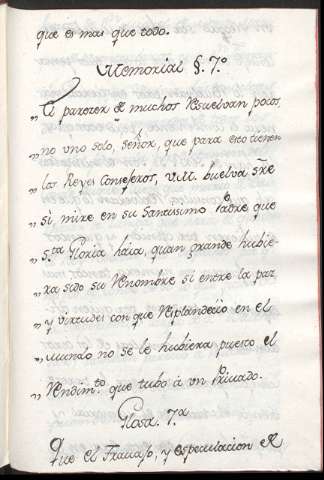 que es mas que todo.
Memorial §. 7.º
„El parezer de muchos resuelvan pocos,
„no uno solo, Señor, que para esto tienen
„los Reyes Consejeros, V.M. buelva sre
„sí, mire en su Santissimo Padre que
„S.ta Gloria haia, quan grande hubie-
„ra sido su renombre si entre la paz
„y virtudes con que resplandeció en el
„mundo no se le hubiera puesto el
„rendim.to que tubo à un Privado.
Glosa. 7.ª
Que el Trabajo, y especulacion de